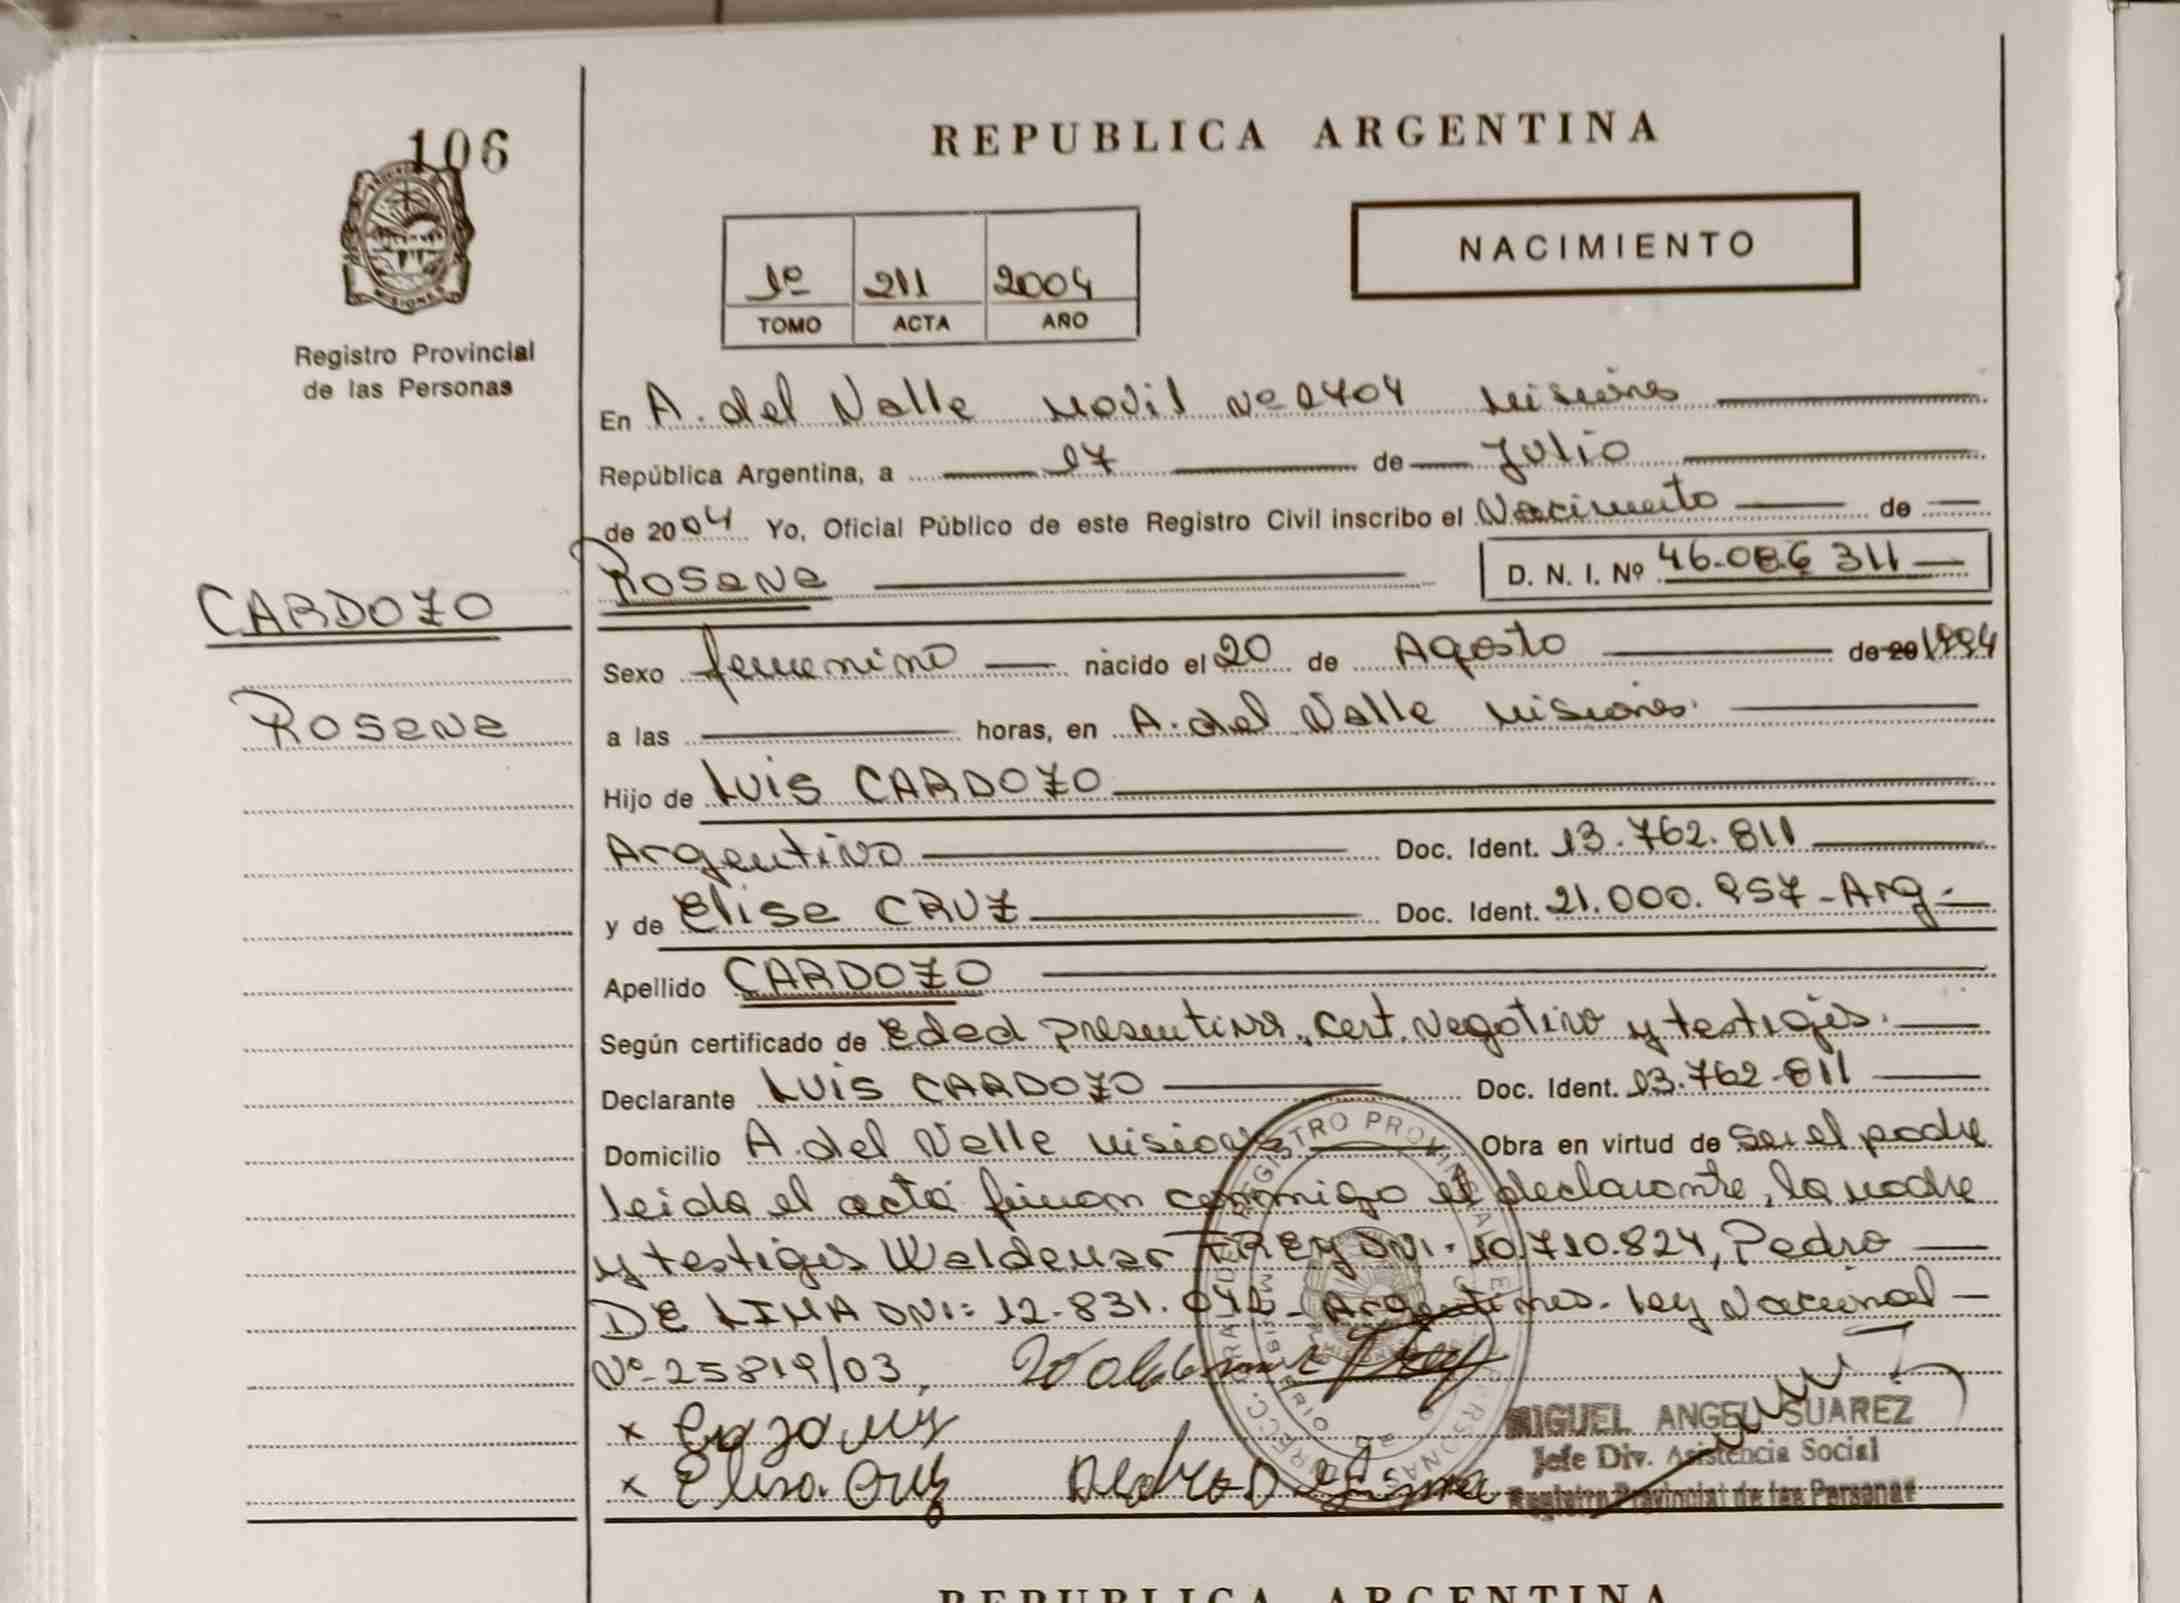 106
MISIONES
Registro Provincial
de las Personas
CARDOZO
Rosana
REPUBLICA ARGENTINA
NACIMIENTO
1º 211 2004
TOMO ACTA AÑO
En A. del Valle Movil Nº 2404 Misiones
República Argentina, a 17 de Julio
de 2004 Yo, Oficial Público de este Registro Civil inscribo el Nacimiento de
Rosana D. N. I. Nº 46.086 311
Sexo femenino nacido el 20 de Agosto de 20 1994
a las horas, en A. del Valle Misiones.
Hijo de Luis CARDOZO
Argentino Doc. Ident. 13.762.811
y de Elisa CRUZ Doc. Ident. 21.000.957 - Arg -
Apellido CARDOZO
Según certificado de Edad presentiva, cert. Negativo y testigos.
Declarante Luis CARDOZO Doc. Ident. 13.762.811
Domicilio A. del Valle Misiones Obra en virtud de Ser el padre
leida el acta firman conmigo el declarante, la madre
y testigos Waldemar FREY DNI. 10.710.824, Pedro
DE LIMA DNI: 12.831. - Argentinos. ley Nacional
Nº 25819/03,
x
x Elisa. Cruz Pedro D Lima
MIGUEL ANGEL SUAREZ
Jefe Div. Asistencia Social
Registro Provincial de las Personas
REPUBLICA ARGENTINA